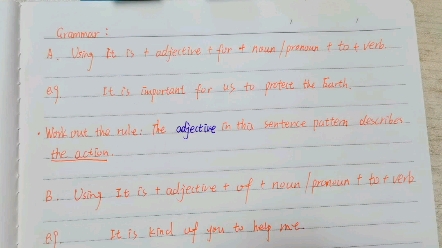 Grammar:
A. Using It is + adjective + for + noun/pronoun + to + verb.
eg. It is important for us to protect the Earth.
• Work out the rule: The adjective in this sentence pattern describes
the action.
B. Using It is + adjective + of + noun/pronoun + to + verb
eg. It is kind of you to help me.